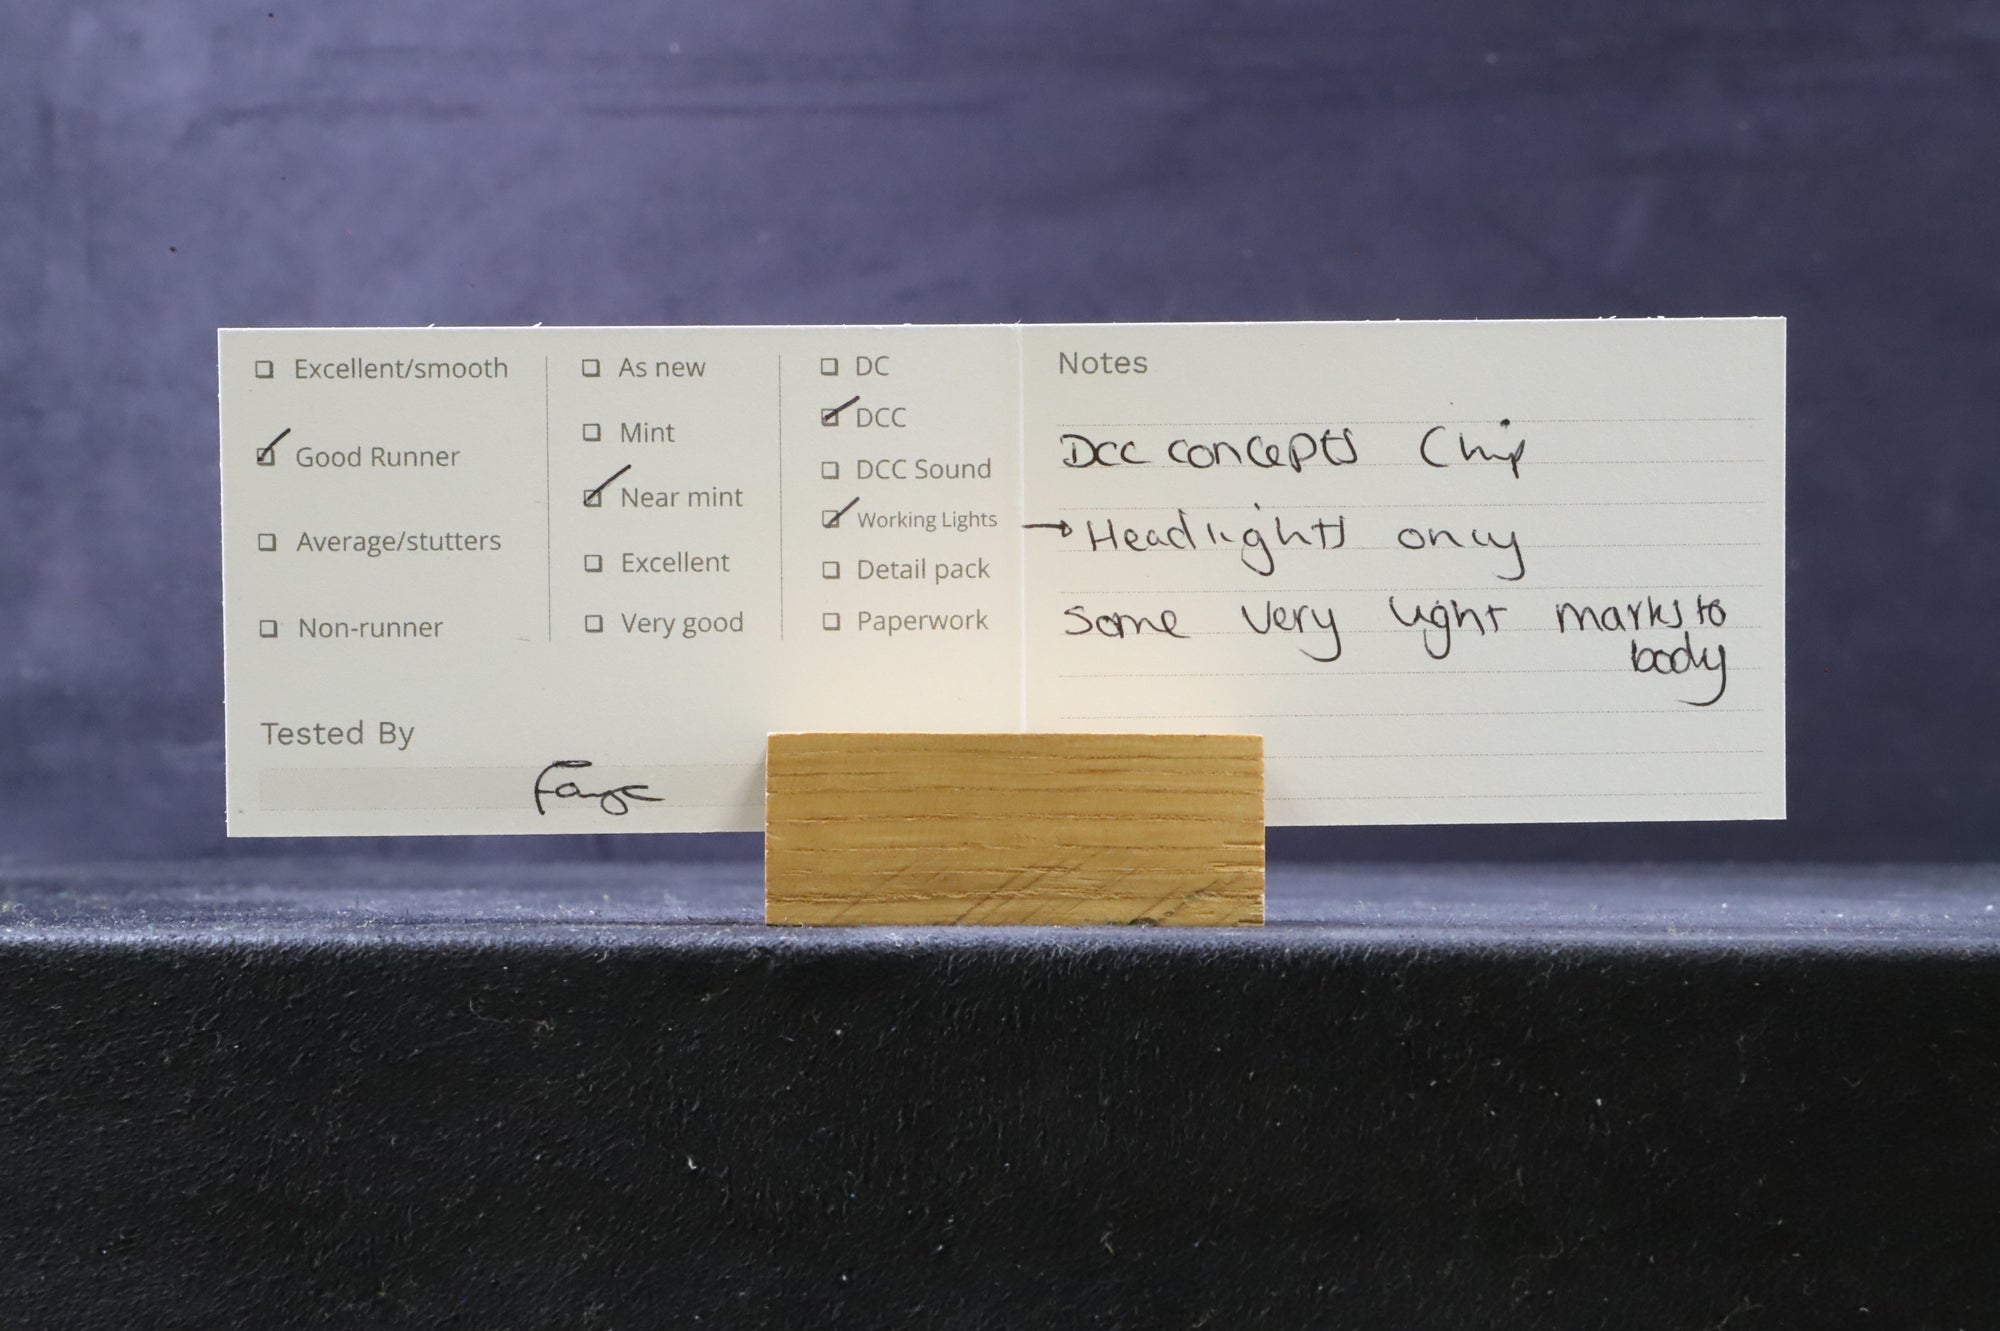 Excellent/smooth
Good Runner
Average/stutters
Non-runner
As new
Mint
Near mint
Excellent
Very good
DC
DCC
DCC Sound
Working Lights
Detail pack
Paperwork
Tested By
Notes
Dcc concepts Chip
→ Headlights only
Some very light marks to
body